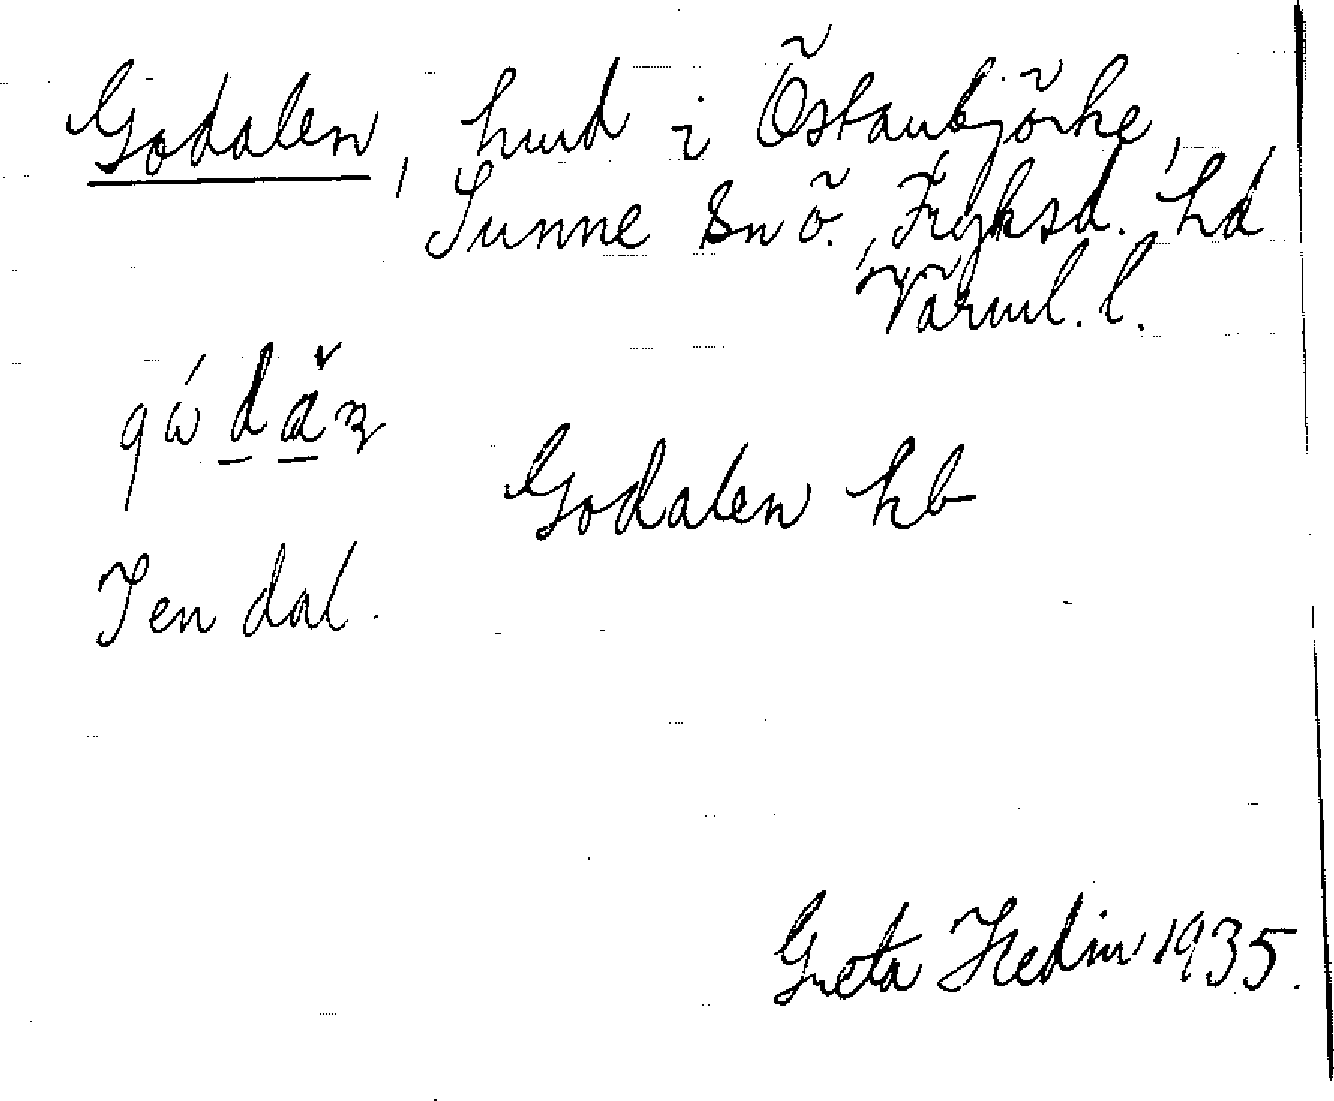 Godalen, hmd i Östanbjörke,
Sunne sn ö. Fryksd. hd
Värml. l.
Godalen hb
I en dal.
Greta Hedin 1935.